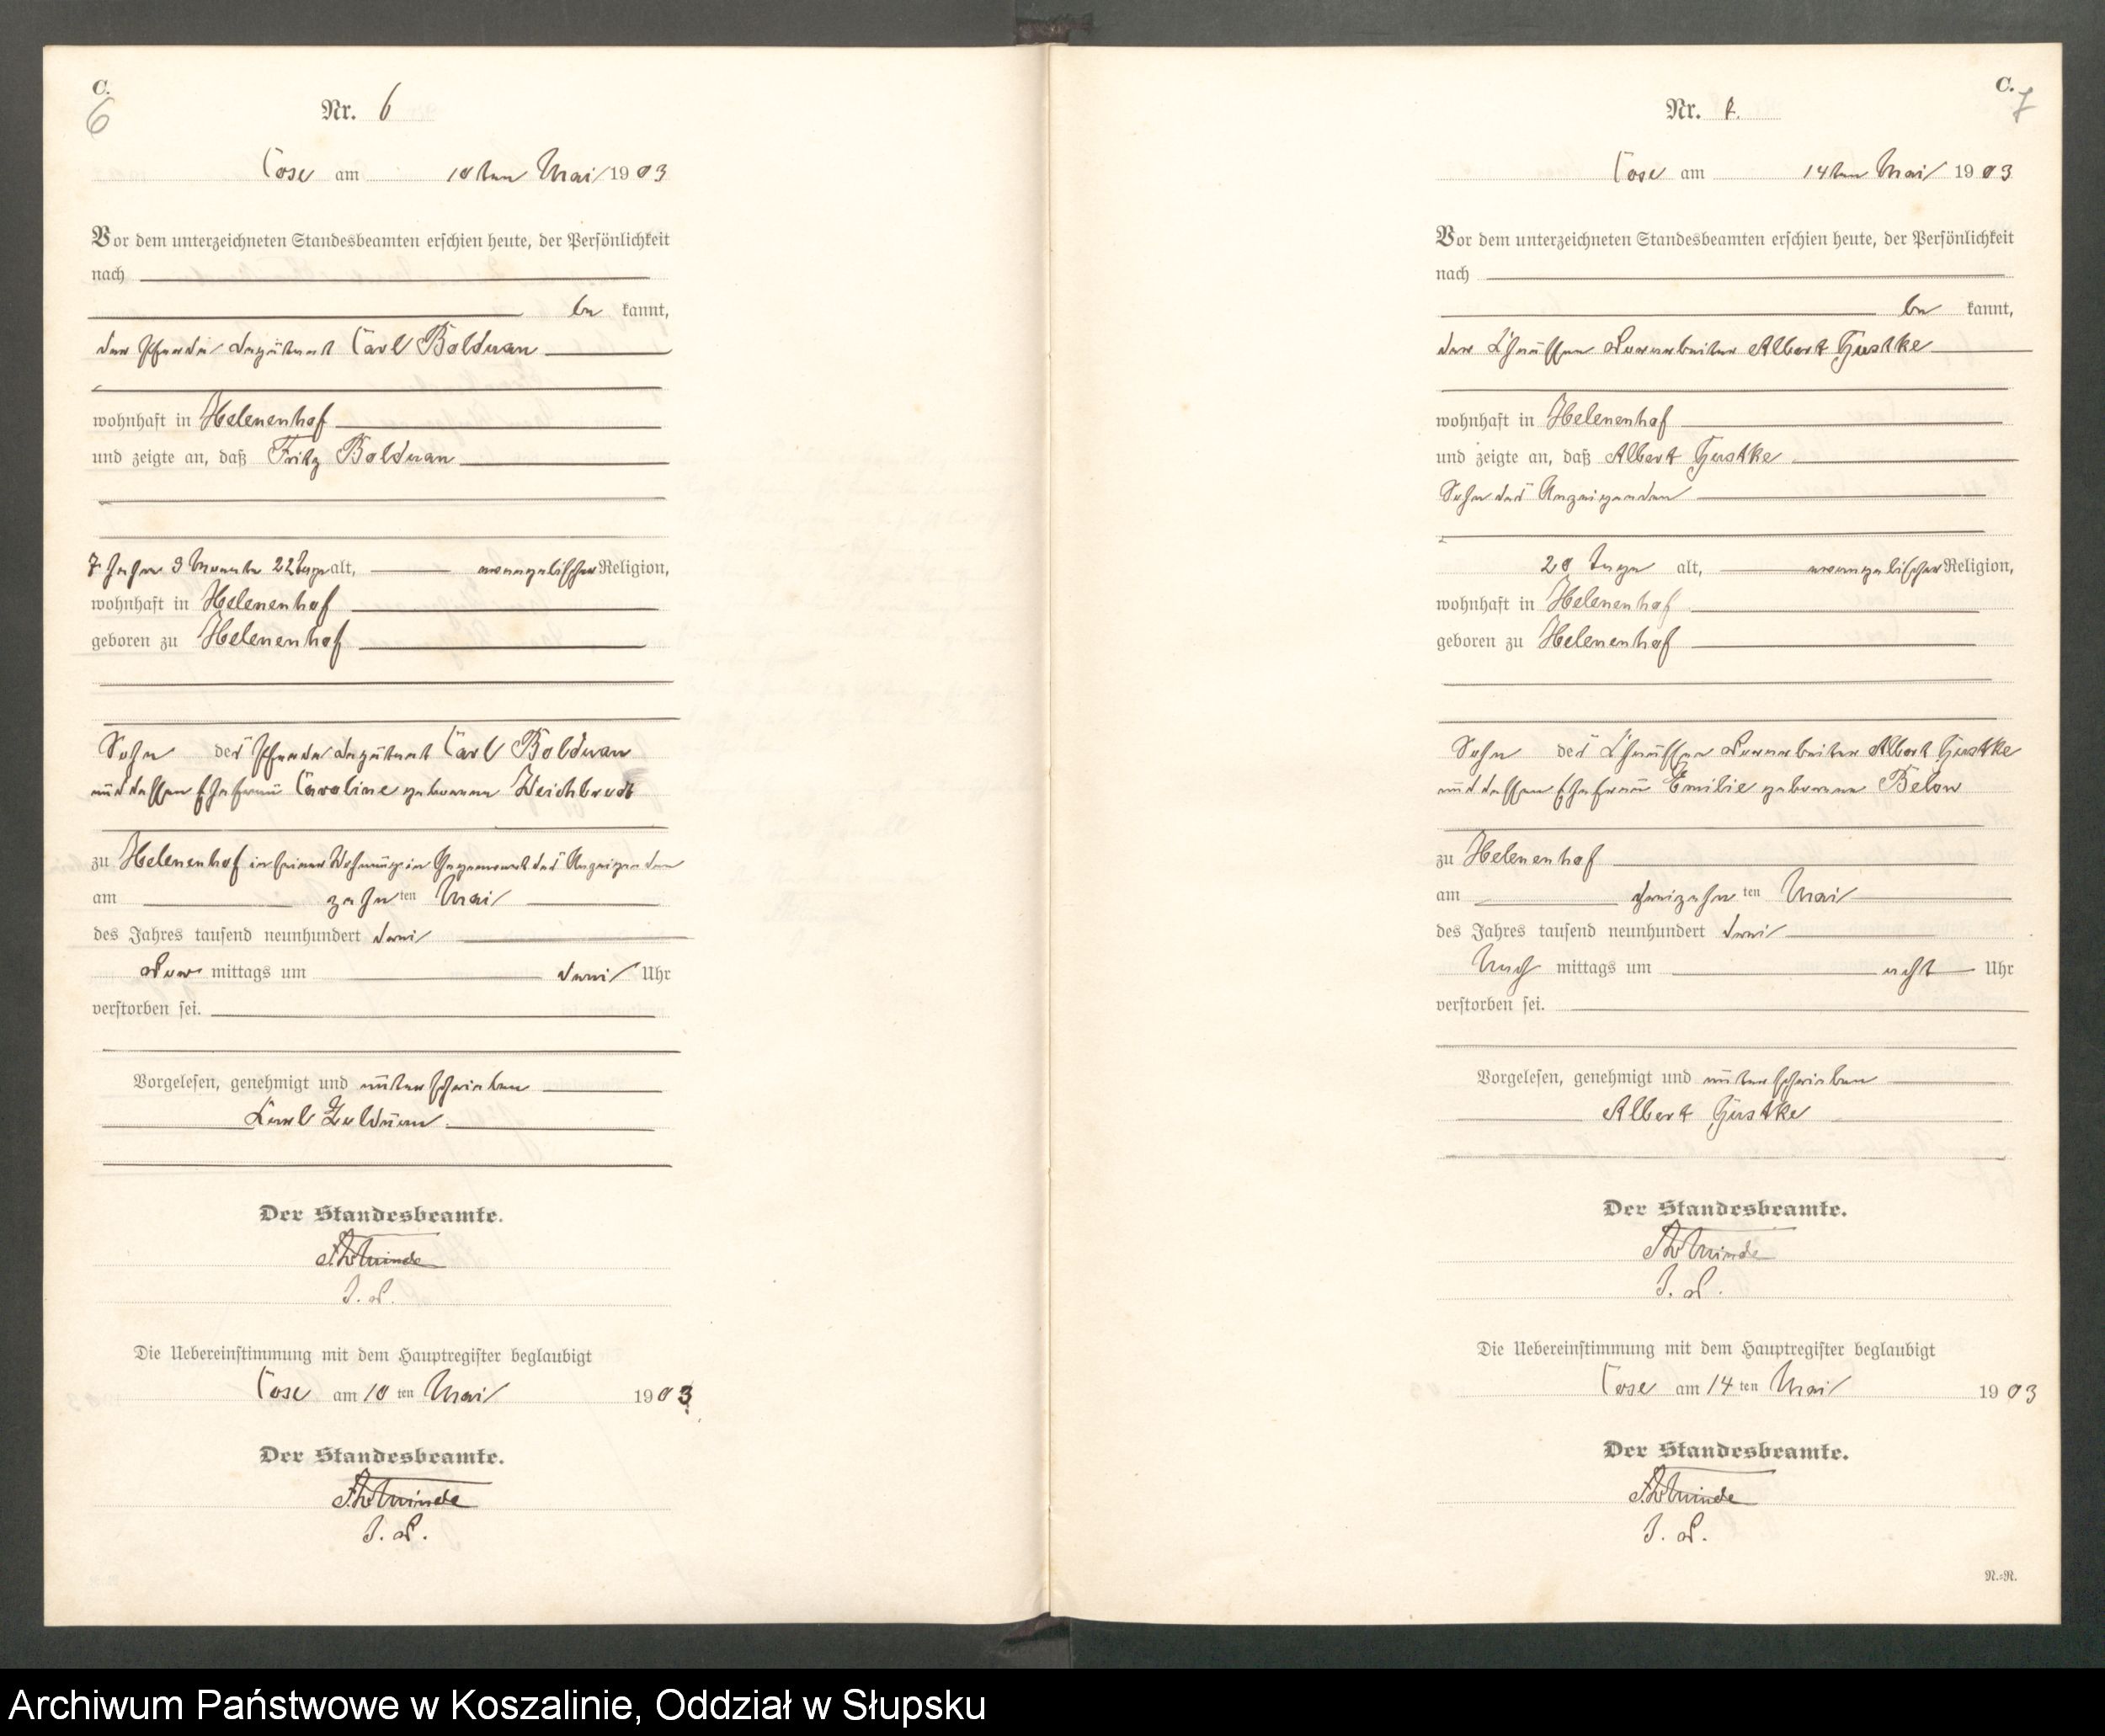 C.
6
Nr. 6
Cose am 10ten Mai 1903
Vor dem unterzeichneten Standesbeamten erschien heute, der Persönlichkeit
nach
be kannt,
der Pferde Deputant Carl Bolduan
wohnhaft in Helenenhof
und zeigte an, daß Fritz Bolduan
7 Jahre 9 Monate 22 Tage alt, evangelischer Religion,
wohnhaft in Helenenhof
geboren zu Helenenhof
Sohn des Pferde Deputant Carl Bolduan
und dessen Ehefrau Caroline geborene Weichbrodt
zu Helenenhof in seiner Wohnung in Gegenwart des Anzeigenden
am zehnten Mai
des Jahres tausend neunhundert drei
Vor mittags um drei Uhr
verstorben sei.
Vorgelesen, genehmigt und unterschrieben
Karl Bolduan
Der Standesbeamte.
J. V.
Die Uebereinstimmung mit dem Hauptregister beglaubigt
Cose am 10 ten Mai 1903
Der Standesbeamte.
J. V.
C.
7
Nr. 7.
Cose am 14ten Mai 1903
Vor dem unterzeichneten Standesbeamten erschien heute, der Persönlichkeit
nach
be kannt,
der Chaussee Vorarbeiter Albert Gustke
wohnhaft in Helenenhof
und zeigte an, daß Albert Gustke
Sohn des Anzeigenden
20 Tage alt, evangelischer Religion,
wohnhaft in Helenenhof
geboren zu Helenenhof
Sohn des Chaussee Vorarbeiter Albert Gustke
und dessen Ehefrau Emilie geborene Below
zu Helenenhof
am dreizehnten Mai
des Jahres tausend neunhundert drei
Nach mittags um acht Uhr
verstorben sei.
Vorgelesen, genehmigt und unterschrieben
Albert Gustke
Der Standesbeamte.
J. V.
Die Uebereinstimmung mit dem Hauptregister beglaubigt
Cose am 14 ten Mai 1903
Der Standesbeamte.
J. V.
N.=N.
Archiwum Państwowe w Koszalinie, Oddział w Słupsku